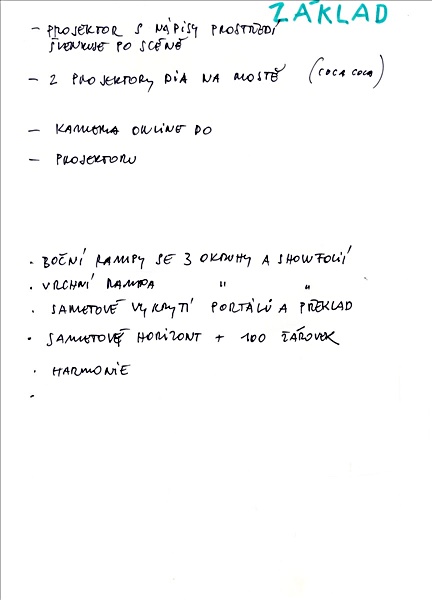 ZÁKLAD
- PROJEKTOR S NÁPISY PROSTŘEDÍ
ŠVENKUJE PO SCÉNĚ
- 2 PROJEKTORY DIA NA MOSTĚ (COCA COLA)
- KAMERA ONLINE DO
- PROJEKTORU
· BOČNÍ RAMPY SE 3 OKRUHY A SHOWFOLIÍ
· VRCHNÍ RAMPA " "
· SAMETOVÉ VYKRYTÍ PORTÁLŮ A PŘEKLAD
· SAMETOVÝ HORIZONT + 100 ŽÁROVEK
· HARMONIE
·